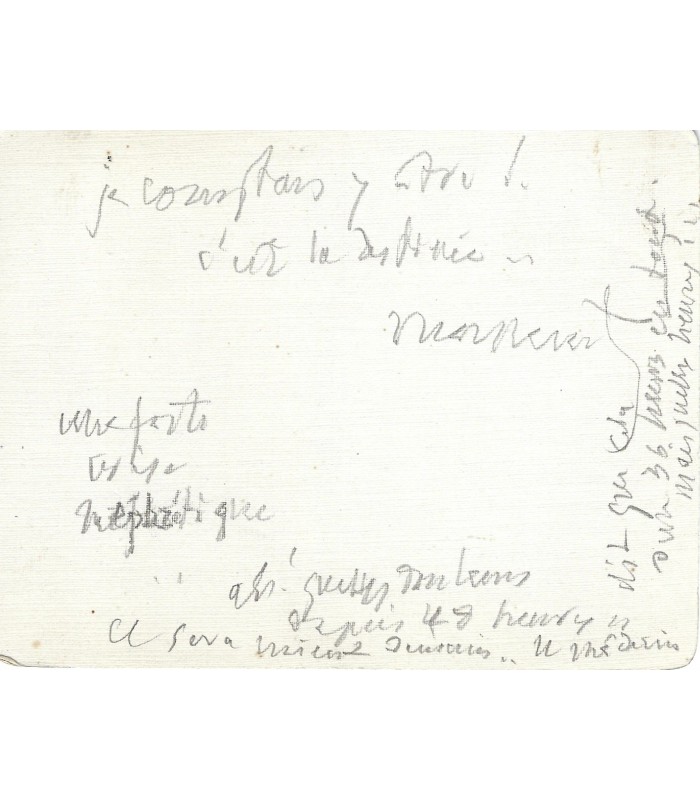 je comptais y être !
c'est la destinée ..
une forte
crise
néphrétique
ah! quelles douleurs
depuis 48 heures ..
Ce sera mieux demain .. le médecin
dit que cela
dure 36 heures
mais quelles heures !!